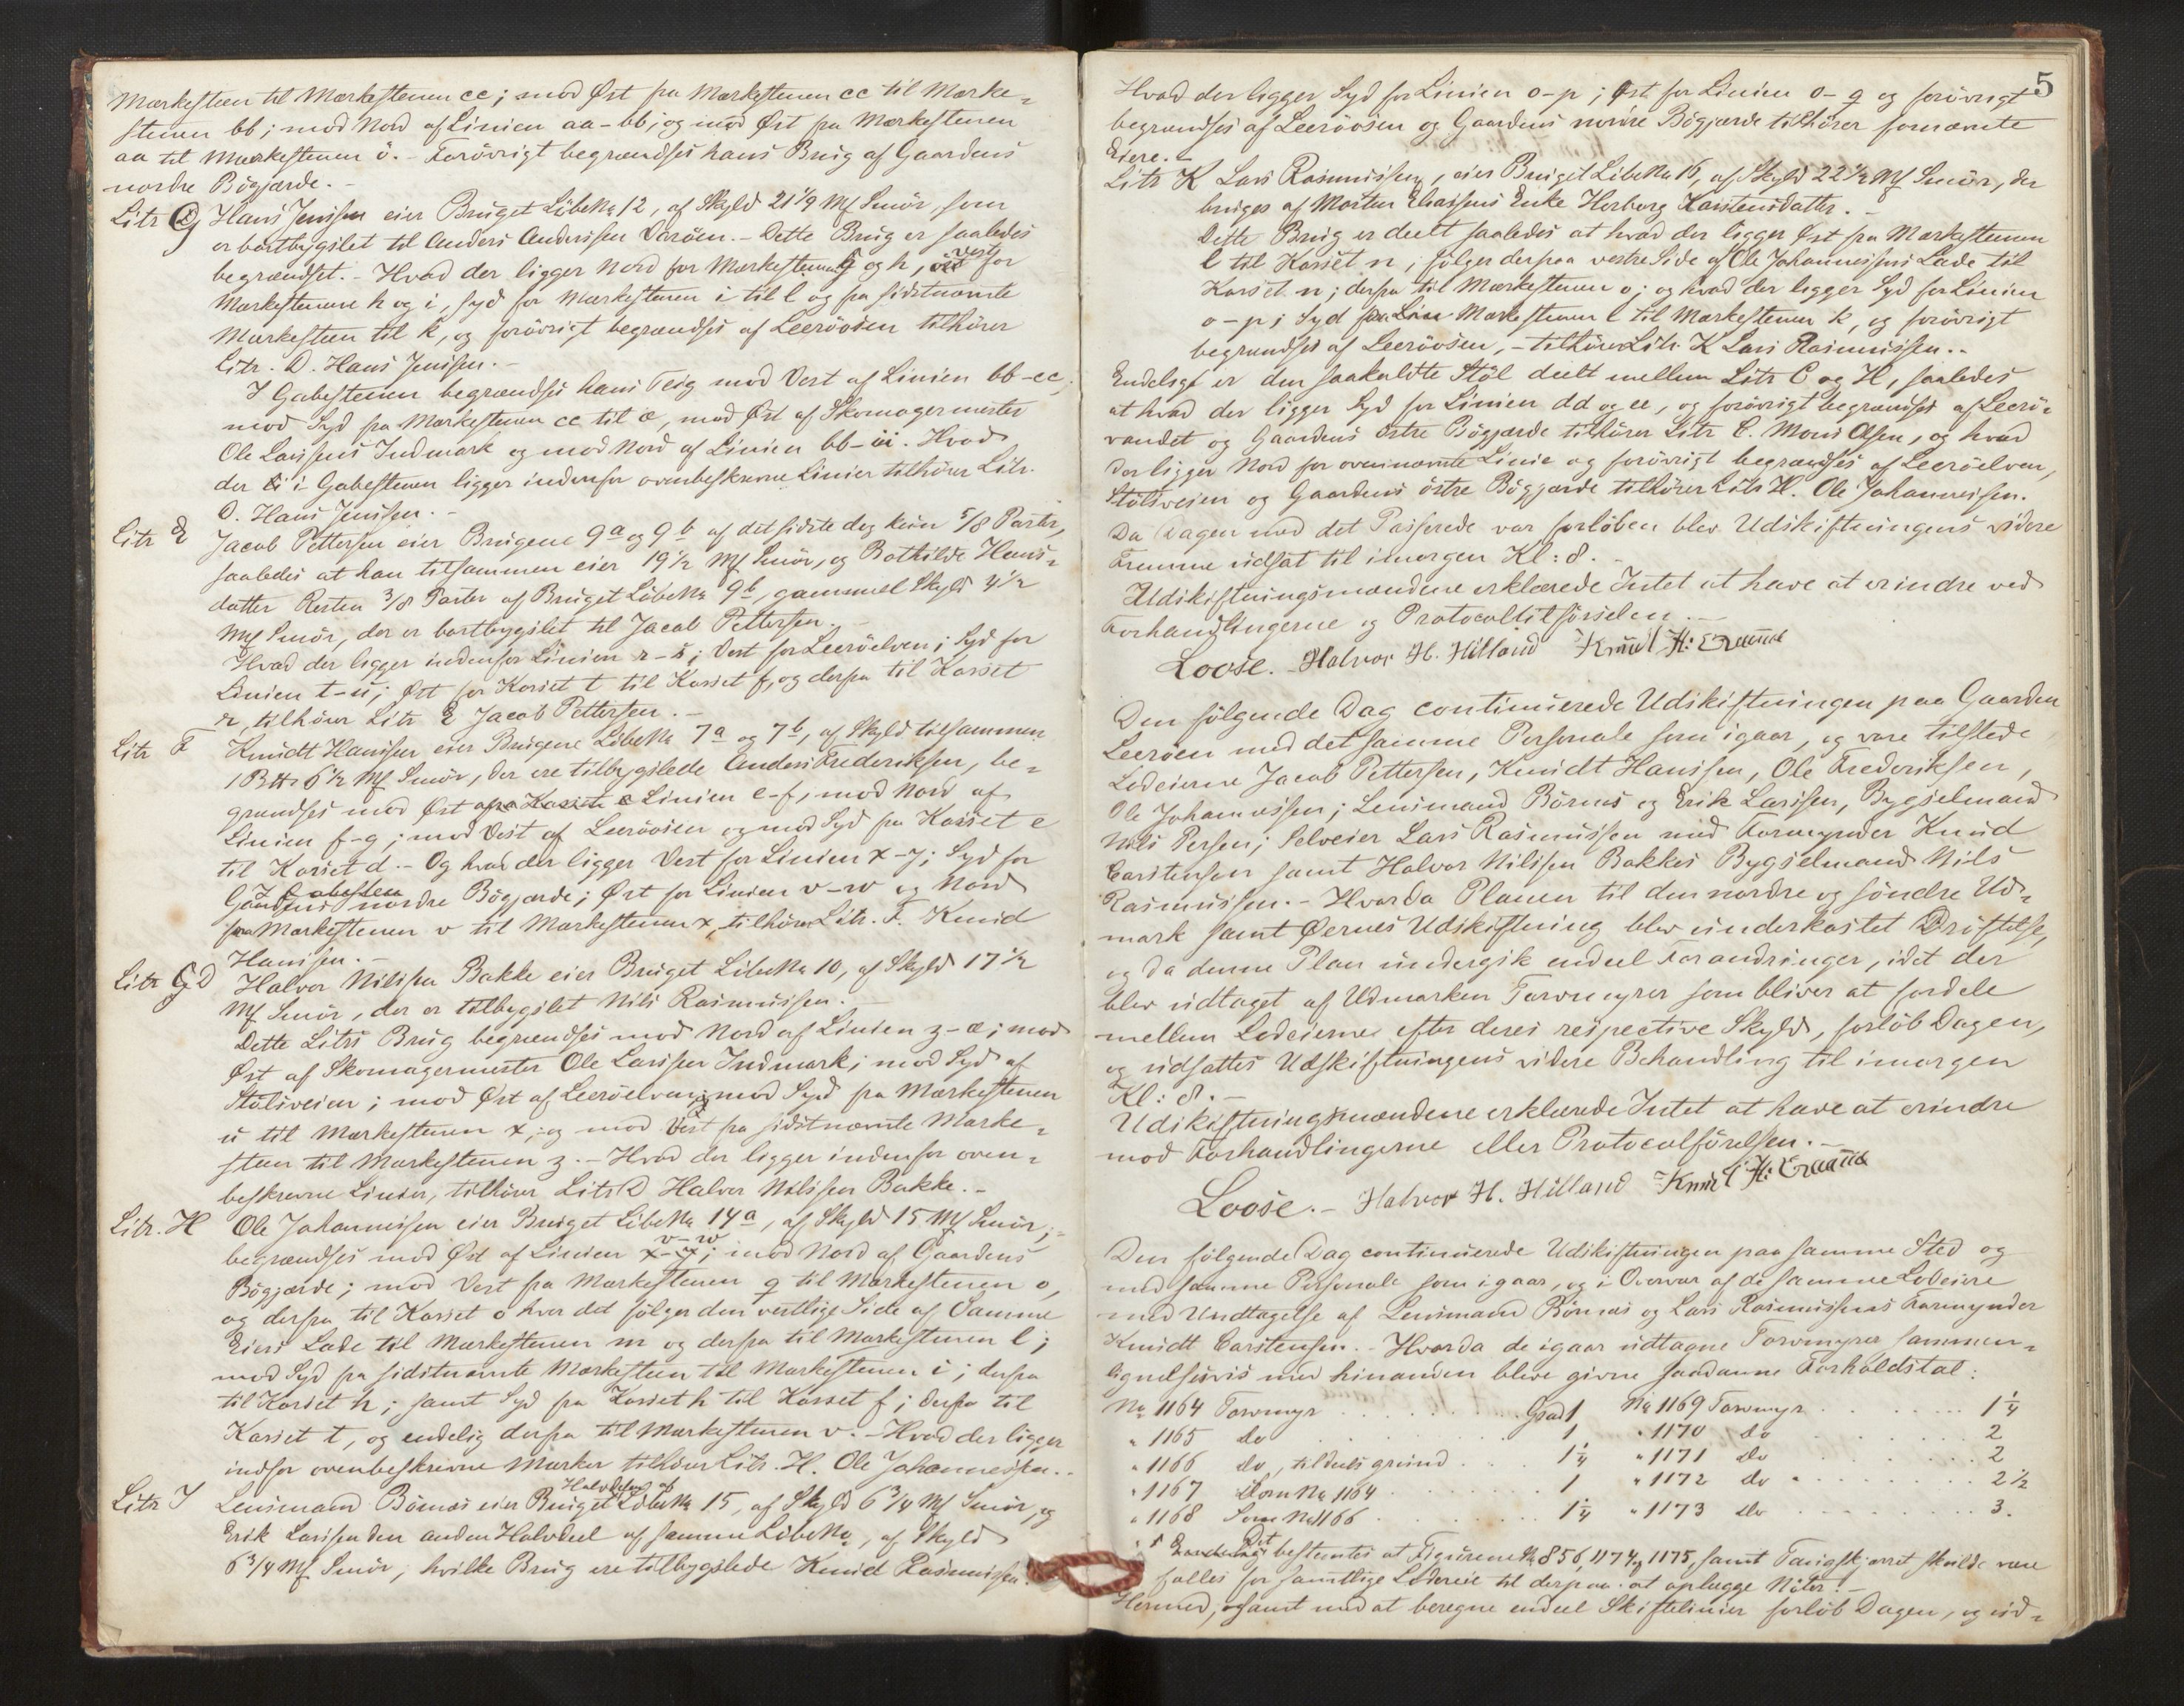 Mærkesteen til Mærkestenen cc; mod Øst fra Mærkestenen cc til Mærke-
stenen bb; mod Nord af Linien aa-bb; og mod Øst fra Mærkestenen
aa til Mærkestenen ö. - Forövrigt begrændses hans Brug af Gaardens
nordre Bögjærde. -
Litr Hans Jenssen eier Bruget Löbe No 12, af Skyld 21 1/9 Mf Smör, som
er bortbygslet til Anders Anderssen Varöen. - Dette Brug er saaledes
begrændset. - Hvad der ligger Nord for Mærkestenen g og h, vest for
Mærkestenene h og i, syd for Mærkestenen i til l og fra sidstnævnte
Mærkesteen til k, og forövrigt begrændses af Leeröosen tilhörer
Litr. D. Hans Jenssen. -
I Gabestenen begrændses hans Teig mod Vest af Linien bb-cc,
mod Syd fra Mærkestenen cc til æ, mod Øst af Skomagermester
Ole Larssens Indmark og mod Nord af Linien bb-ii. Hvad
der i Gabestenen ligger indenfor ovenbeskrevne Linier tilhörer Litr.
D. Hans Jenssen. -
Litr E Jacob Pettersen eier Brugene 9a og 9b af det sidste dog kun 5/8 Parter,
saaledes at han tilsammen eier 19 1/2 Mf Smör, og Bothilde Hans-
datter Resten 3/8 Parter af Bruget Löbe No 9b, gammel Skyld 4 1/2
Mf Smör, der er bortbygslet til Jacob Pettersen. -
Hvad der ligger indenfor Linien r-s; Vest for Leeröelven; Syd for
Linien t-u; Øst for Korset t til Korset f, og derfra til Korset
r, tilhörer Litr E Jacob Pettersen. -
Litr F Knudt Hanssen eier Brugene Löbe No 7a og 7b, af Skyld tilsammen
1 B# 6 1/2 Mf Smör, der ere tilbygslede Anders Frederiksen, be-
grændses mod Øst af Linien e-f, mod Nord af
Linien f-g; mod Vest af Leeröosen og mod Syd fra Korset e
til Korset d. - Og hvad der ligger Vest for Linien x-y; Syd for
I Gabesten
Gaardens nordre Bögjærde; Øst for Linien v-w og Nord
fra Mærkestenen v til Mærkestenen x, tilhörer Litr. F. Knud
Hanssen. -
Litr G Halvor Nilssen Bakke eier Bruget Löbe No 10, af Skyld 17 1/2
Mf Smör, der er tilbygslet Nils Rasmussen. -
Dette Litrs Brug begrændses mod Nord af Linien z-æ; mod
Øst af Skomagermester Ole Larssens Indmark; mod Syd af
Stölsveien; mod Øst af Leeröelven; mod Syd fra Mærkestenen
u til Mærkestenen x; og mod Vest fra sidstnævnte Mærke-
steen til Mærkestenen z. - Hvad der ligger indenfor oven-
beskrevne Linier, tilhörer Litr Halvor Nilssen Bakke. -
Litr. H Ole Johannessen eier Bruget Löbe No 14a, af Skyld 15 Mf Smör;
v-w
begrændses mod Øst af Linien x-y; mod Nord af Gaardens
Bögjærde; mod Vest fra Mærkestenen q til Mærkestenen o,
og derfra til Korset o hvor det fölger den vestlige Side af Samme
Eiers Lade til Mærkestenen m og derfra til Mærkestenen l;
mod Syd fra sidstnævnte Mærkesteen til Mærkestenen i; derfra
til Korset h; samt Syd fra Korset h til Korset f; derfra til
Korset t, og endelig derfra til Mærkestenen v. - Hvad der ligger
indfor ovenbeskrevne Mærker tilhörer Litr. H. Ole Johannessen. -
Halvdelen af
Litr I Lensmand Börnæs eier Bruget Löbe No 15, af Skyld 6 3/4 Mf Smör, og
Erik Larssen den anden Halvdeel af samme Löbe No, af Skyld
6 3/4 Mf Smör; hvilke Brug ere tilbygslede Knud Rasmussen.
5
Hvad der ligger Syd for Linien o-p; Øst for Linien o-q og forövrigt
begrændses af Leeröosen og Gaardens nordre Bögjærde tilhörer fornævnte
Eiere. -
Litr K Lars Rasmussen, eier Bruget Löbe No 16, af Skyld 22 1/2 Mf Smör, der
bruges af Morten Eliassens Enke Herborg Karstensdatter. -
Dette Brug er deelt saaledes at hvad der ligger Øst fra Mærkestenen
l til Korset n; fölger derpaa vestre Side af Ole Johannessens Lade til
Korset n; derfra til Mærkestenen o; og hvad der ligger Syd for Linien
o-p; Syd fra Mærkestenen l til Mærkestenen k, og forövrigt
begrændses af Leeröosen, - tilhörer Litr. K Lars Rasmussen. -
Endeligt er den saakaldte Stöl deelt mellem Litr C og H, saaledes
at hvad der ligger Syd for Linien dd og ee, og forövrigt begrændses af Leerö-
vandet og Gaardens östre Bögjærde tilhörer Litr C. Mons Olsen, og hvad
der ligger Nord for ovennævnte Linie og forövrigt begrændses af Leeröelven,
Stölsveien og Gaardens östre Bögjærde tilhörer Litr H. Ole Johannessen.
Da Dagen med det Passerede var forlöben blev Udskiftningens videre
Fremme udsat til imorgen Kl: 8. -
Udskiftningsmændene erklærede Intet at have at erindre ved
Forhandlingerne og Protocoltilförselen. -
Loose. - Halvor H. Hilland Knud H:
Den fölgende Dag continuerede Udskiftningen paa Gaarden
Leeröen med det samme Personale som igaar, og vare tilstede
Lodeierne Jacob Pettersen, Knudt Hanssen, Ole Frederiksen,
Ole Johannessen; Lensmand Börnæs og Erik Larssen, Bygselmand
Nils Persen; Selveier Lars Rasmussen med Formynder Knud
Carstensen samt Halvor Nilssen Bakkes Bygselmand Nils
Rasmussen. - Hvorda Planen til den nordre og söndre Ud-
mark samt Øernes Udskiftning blev underkastet Dröftelse,
og da denne Plan undergik endeel Forandringer, idet der
blev udtaget af Udmarken Torvmyrer som bliver at fordele
mellem Lodeierne efter deres respective Skyld, forlöb Dagen,
og udsattes Udskiftningens videre Behandling til imorgen
Kl: 8. -
Udskiftningsmændene erklærede Intet at have at erindre
mod Forhandlingerne eller Protocolförelsen. -
Loose. - Halvor H. Hilland Knud H:
Den fölgende Dag continuerede Udskiftningen paa samme Sted og
med samme Personale som igaar, og i Overvær af de samme Lodeiere
med Undtagelse af Lensmand Börnæs og Lars Rasmussens Formynder
Knudt Carstensen. - Hvorda de igaar udtagne Torvmyrer sammen-
lignelsesvis med hinanden bleve givne saadanne Forholdstal:
No 1164 Torvmyr Grad 1 No 1169 Torvmyr 1 1/4
" 1165 do 1 " 1170 do 2
" 1166 do, tildeels grund 1 1/4 " 1171 do 2
" 1167 Som No 1164 1 " 1172 do 2 1/2
" 1168 Som No 1166 1 1/4 " 1173 do 3.
Det bestemtes at Figurerne No 856, 1174 og 1175, samt Tangskjæret skulde være
fælles for samtlige Lodeiere til derpaa at oplægge Nöter. -
Hermed, samt med at beregne endeel Skiftelinier forlöb Dagen, og ud-